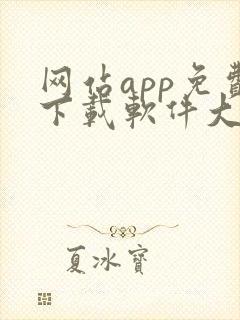 网佔app免費
下載軟件大
夏冰寶